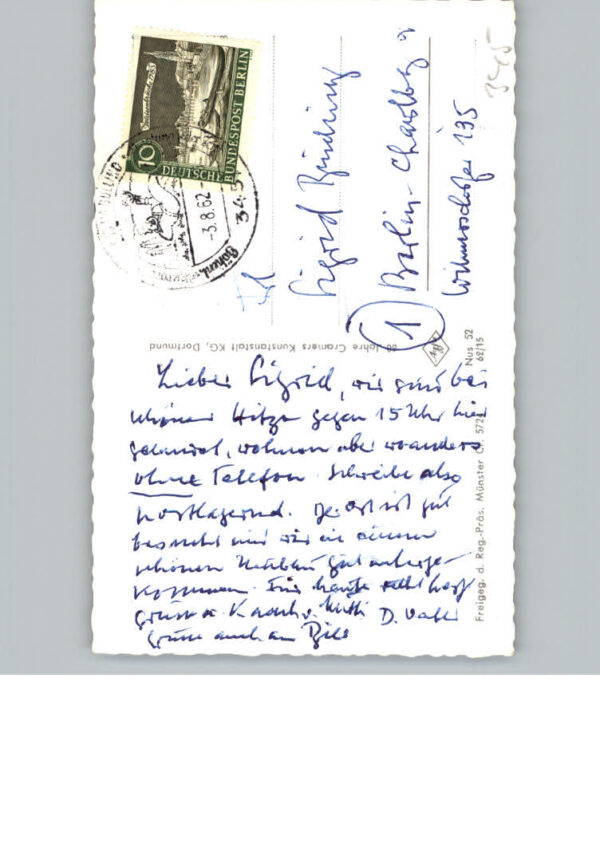 10
DEUTSCHE
BUNDESPOST BERLIN
-3.8.62-
3451
Sigrid
Berlin-Charlbg 9
Wilmersdorfer 135
1
3415
60 Jahre Cramers Kunstanstalt KG, Dortmund
Nus 52
62/15
Freigeg. d. Reg.-Präs. Münster
Lieber Sigrid, wir sind bei
schöner Hitze gegen 15 Uhr hier
gelandet, wohnen aber woanders
ohne Telefon. Schreibe also
postlagernd. Der Ort ist gut
besucht und wir in einem
schönen Neubau gut unterge-
kommen. Für heute
D. Vater
Grüsse auch an